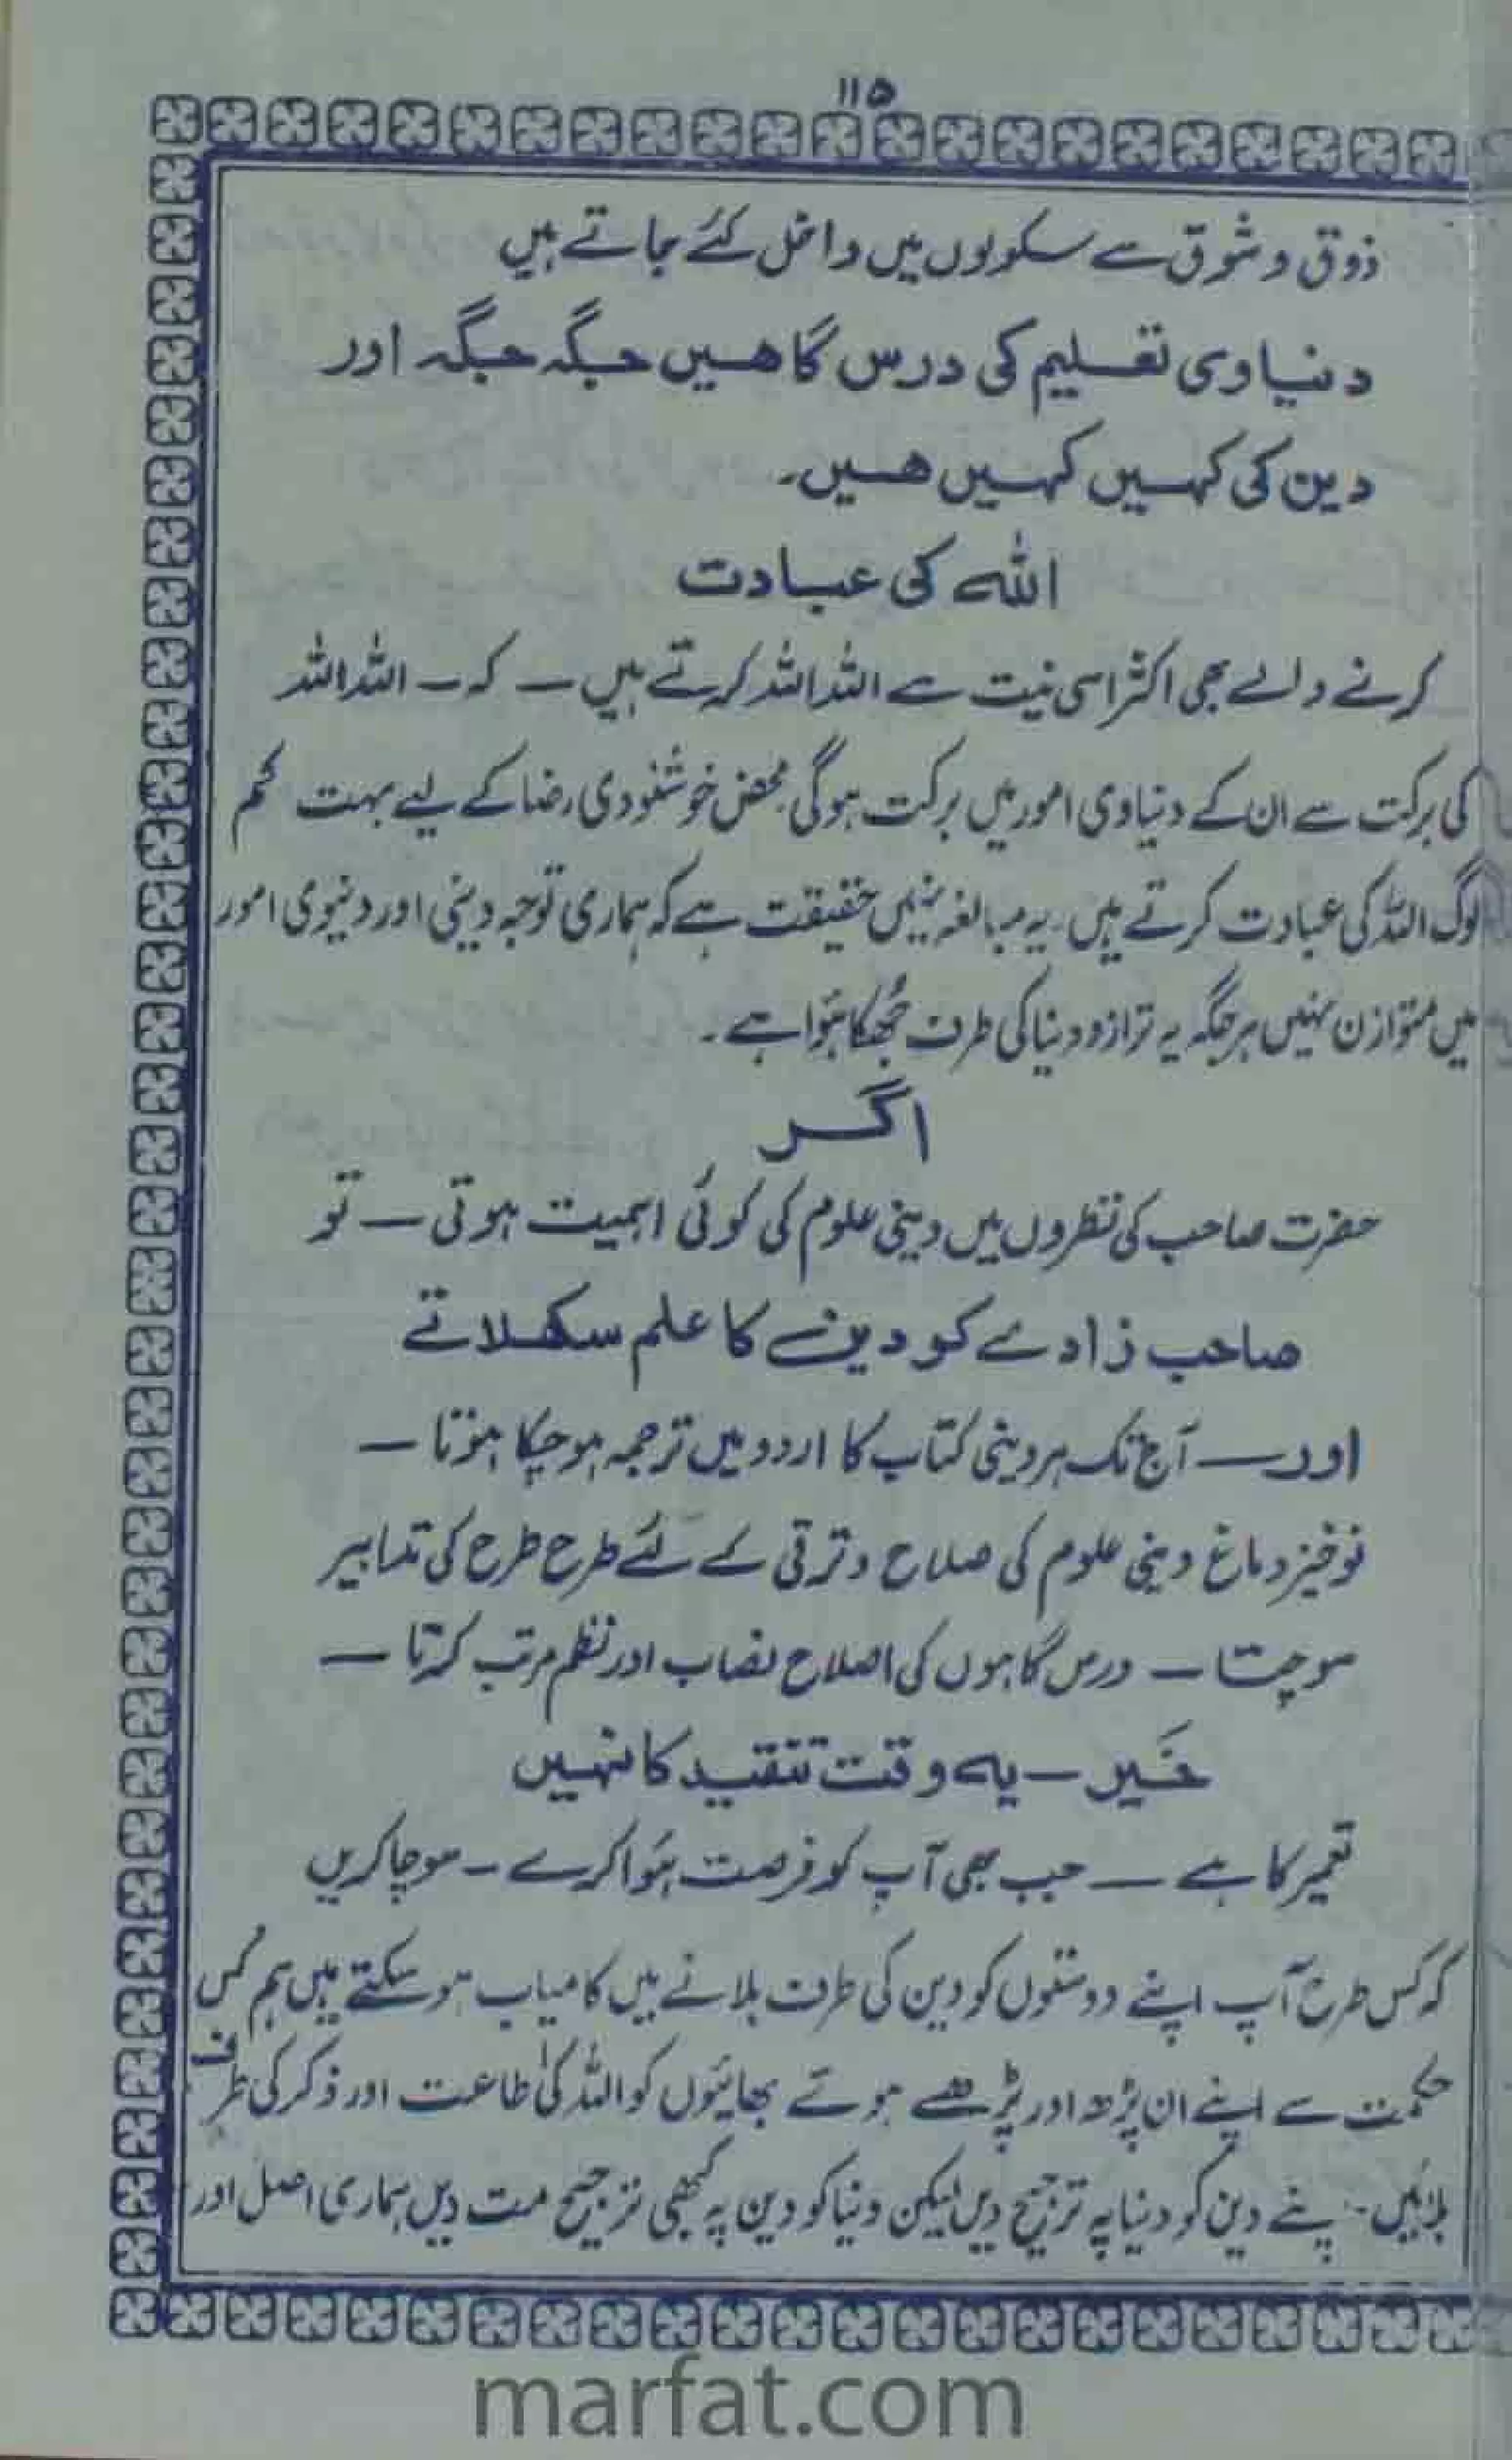 ۱۱۵
ذوق و شوق سے سکولوں میں داخل کئے جاتے ہیں
دنیاوی تعلیم کی درس گاھیں جگہ جگہ اور
دین کی کہیں کہیں ھیں۔
اللہ کی عبادت
کرنے والے بھی اکثر اسی نیت سے اللہ اللہ کرتے ہیں — کہ — اللہ اللہ
کی برکت سے ان کے دنیاوی امور میں برکت ہوگی محض خوشنودی رضا کے لیے بہت کم
لوگ اللہ کی عبادت کرتے ہیں۔ یہ مبالغہ نہیں حقیقت ہے کہ ہماری توجہ دینی اور دنیوی امور
میں متوازن نہیں ہر جگہ یہ ترازو دنیا کی طرف جُھکا ہُوا ہے۔
اگر
حضرت صاحب کی نظروں میں دینی علوم کی کوئی اہمیت ہوتی — تو
صاحب زادے کو دین کا علم سکھلاتے
اور — آج تک ہر دینی کتاب کا اردو میں ترجمہ ہوچکا ہوتا —
نوخیز دماغ دینی علوم کی صلاح و ترقی کے لئے طرح طرح کی تدابیر
سوچتا — درس گاہوں کی اصلاح نصاب اور نظم مرتب کرتا —
خَیر — یہ وقت تنقید کا نہیں
تعمیر کا ہے — جب بھی آپ کو فرصت ہُوا کرے — سوچا کریں
کہ کس طرح آپ اپنے دوستوں کو دین کی طرف بلانے میں کامیاب ہو سکتے ہیں ہم کس
حکمت سے اپنے ان پڑھ اور پڑھے ہوئے بھائیوں کو اللہ کی طاعت اور ذکر کی طرف
بلائیں۔ اپنے دین کو دنیا پہ ترجیح دیں لیکن دنیا کو دین پہ کبھی ترجیح مت دیں ہماری اصل اور
marfat.com